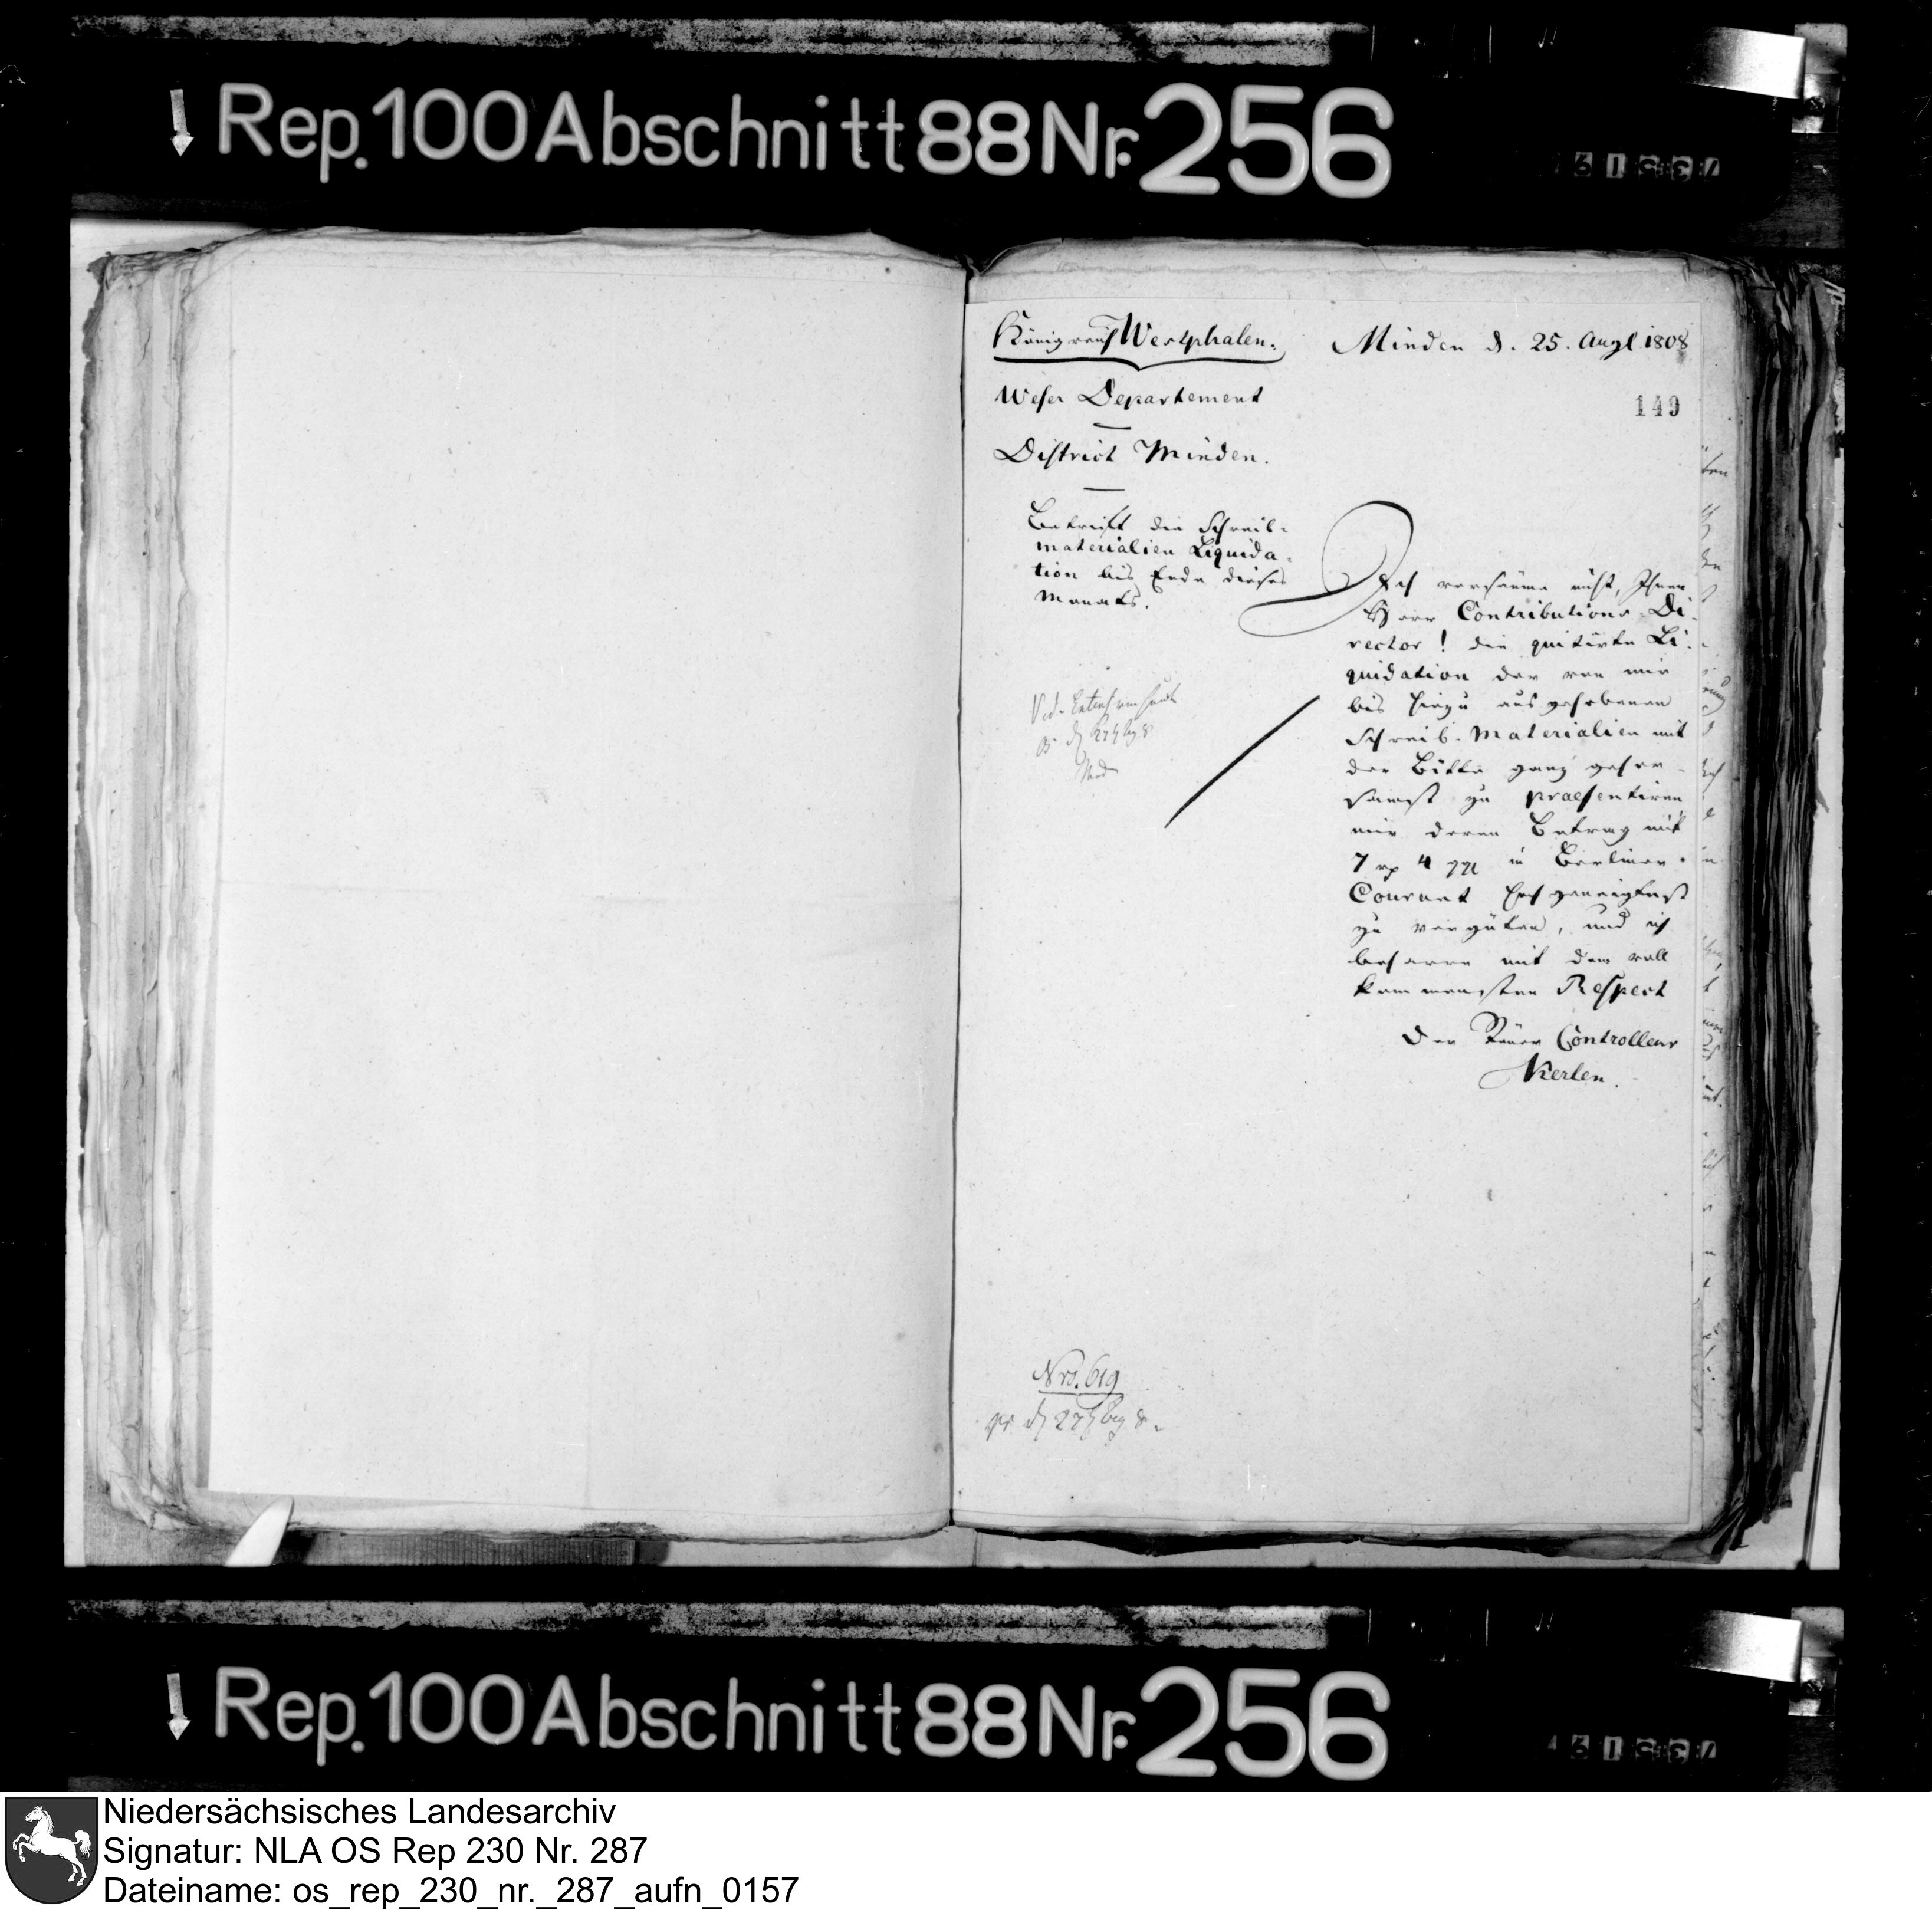 Rep. 100 Abschnitt 88 Nr. 256
Königreich Westphalen.
Minden d. 25. Augt 1808
149
Weser Departement
District Minden.
Betrifft die Schreib-
materialien Liquida-
tion bis Ende dieses
Monats.
Ich versäume nicht, Ihnen
Herr Contributions-Di-
rector! die quitirte Li-
quidation der von mir
bis hiezu ausgehobenen
Schreib-Materialien mit
der Bitte ganz gehor-
samst zu praesentiren,
mir deren Betrag mit
7 rp 4 ggl in Berliner
Courant hochgeneigtest
zu vergüten, und ich
beharre mit dem voll
kommensten Respect
Der Steuer Controlleur
Kerlen.
Nro. 619
Rep. 100 Abschnitt 88 Nr. 256
Niedersächsisches Landesarchiv
Signatur: NLA OS Rep 230 Nr. 287
Dateiname: os_rep_230_nr._287_aufn_0157